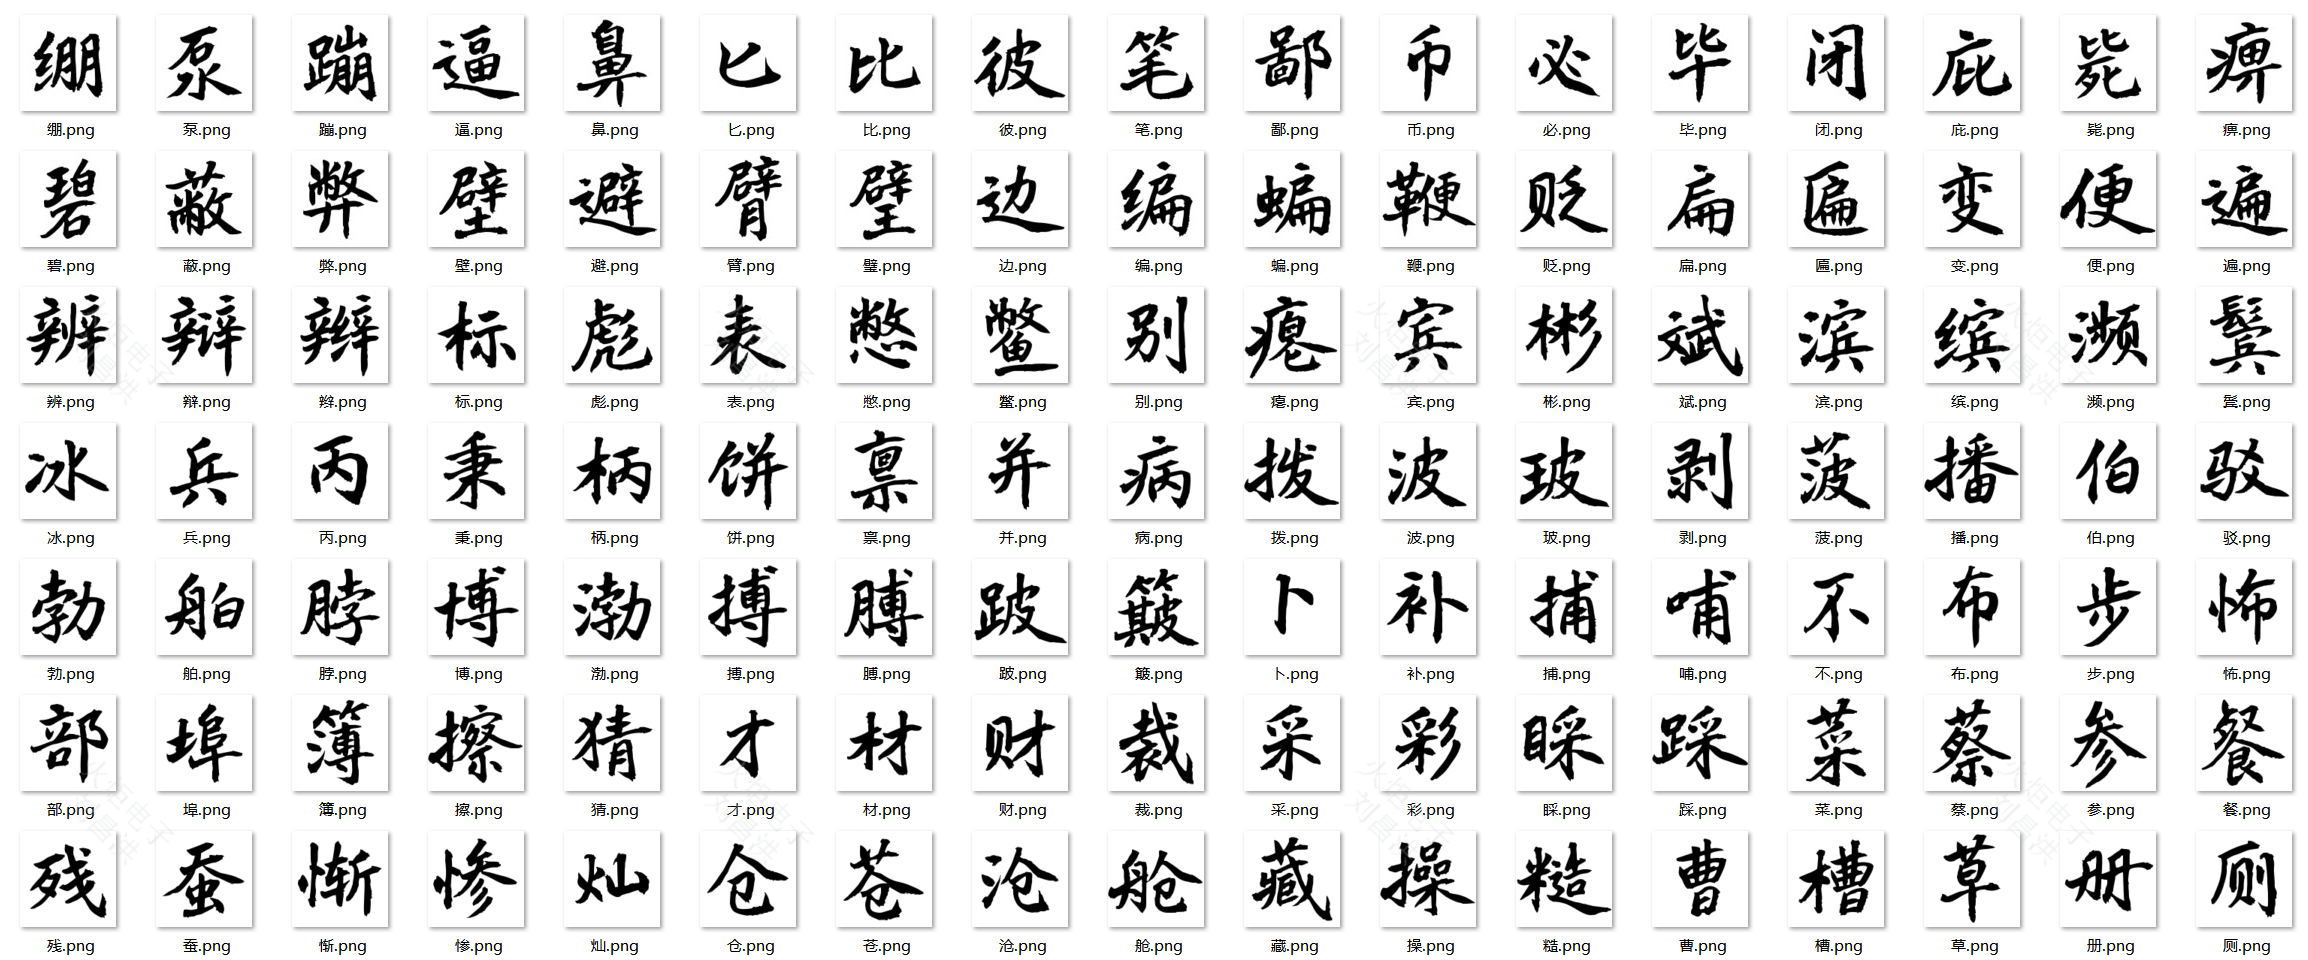 绷 泵 蹦 逼 鼻 匕 比 彼 笔 鄙 币 必 毕 闭 庇 毙 痹
绷.png 泵.png 蹦.png 逼.png 鼻.png 匕.png 比.png 彼.png 笔.png 鄙.png 币.png 必.png 毕.png 闭.png 庇.png 毙.png 痹.png
碧 蔽 弊 壁 避 臂 璧 边 编 蝙 鞭 贬 扁 匾 变 便 遍
碧.png 蔽.png 弊.png 壁.png 避.png 臂.png 璧.png 边.png 编.png 蝙.png 鞭.png 贬.png 扁.png 匾.png 变.png 便.png 遍.png
辨 辩 辫 标 彪 表 憋 鳖 别 瘪 宾 彬 斌 滨 缤 濒 鬓
辨.png 辩.png 辫.png 标.png 彪.png 表.png 憋.png 鳖.png 别.png 瘪.png 宾.png 彬.png 斌.png 滨.png 缤.png 濒.png 鬓.png
冰 兵 丙 秉 柄 饼 禀 并 病 拨 波 玻 剥 菠 播 伯 驳
冰.png 兵.png 丙.png 秉.png 柄.png 饼.png 禀.png 并.png 病.png 拨.png 波.png 玻.png 剥.png 菠.png 播.png 伯.png 驳.png
勃 舶 脖 博 渤 搏 膊 跛 簸 卜 补 捕 哺 不 布 步 怖
勃.png 舶.png 脖.png 博.png 渤.png 搏.png 膊.png 跛.png 簸.png 卜.png 补.png 捕.png 哺.png 不.png 布.png 步.png 怖.png
部 埠 簿 擦 猜 才 材 财 裁 采 彩 睬 踩 菜 蔡 参 餐
部.png 埠.png 簿.png 擦.png 猜.png 才.png 材.png 财.png 裁.png 采.png 彩.png 睬.png 踩.png 菜.png 蔡.png 参.png 餐.png
残 蚕 惭 惨 灿 仓 苍 沧 舱 藏 操 糙 曹 槽 草 册 厕
残.png 蚕.png 惭.png 惨.png 灿.png 仓.png 苍.png 沧.png 舱.png 藏.png 操.png 糙.png 曹.png 槽.png 草.png 册.png 厕.png